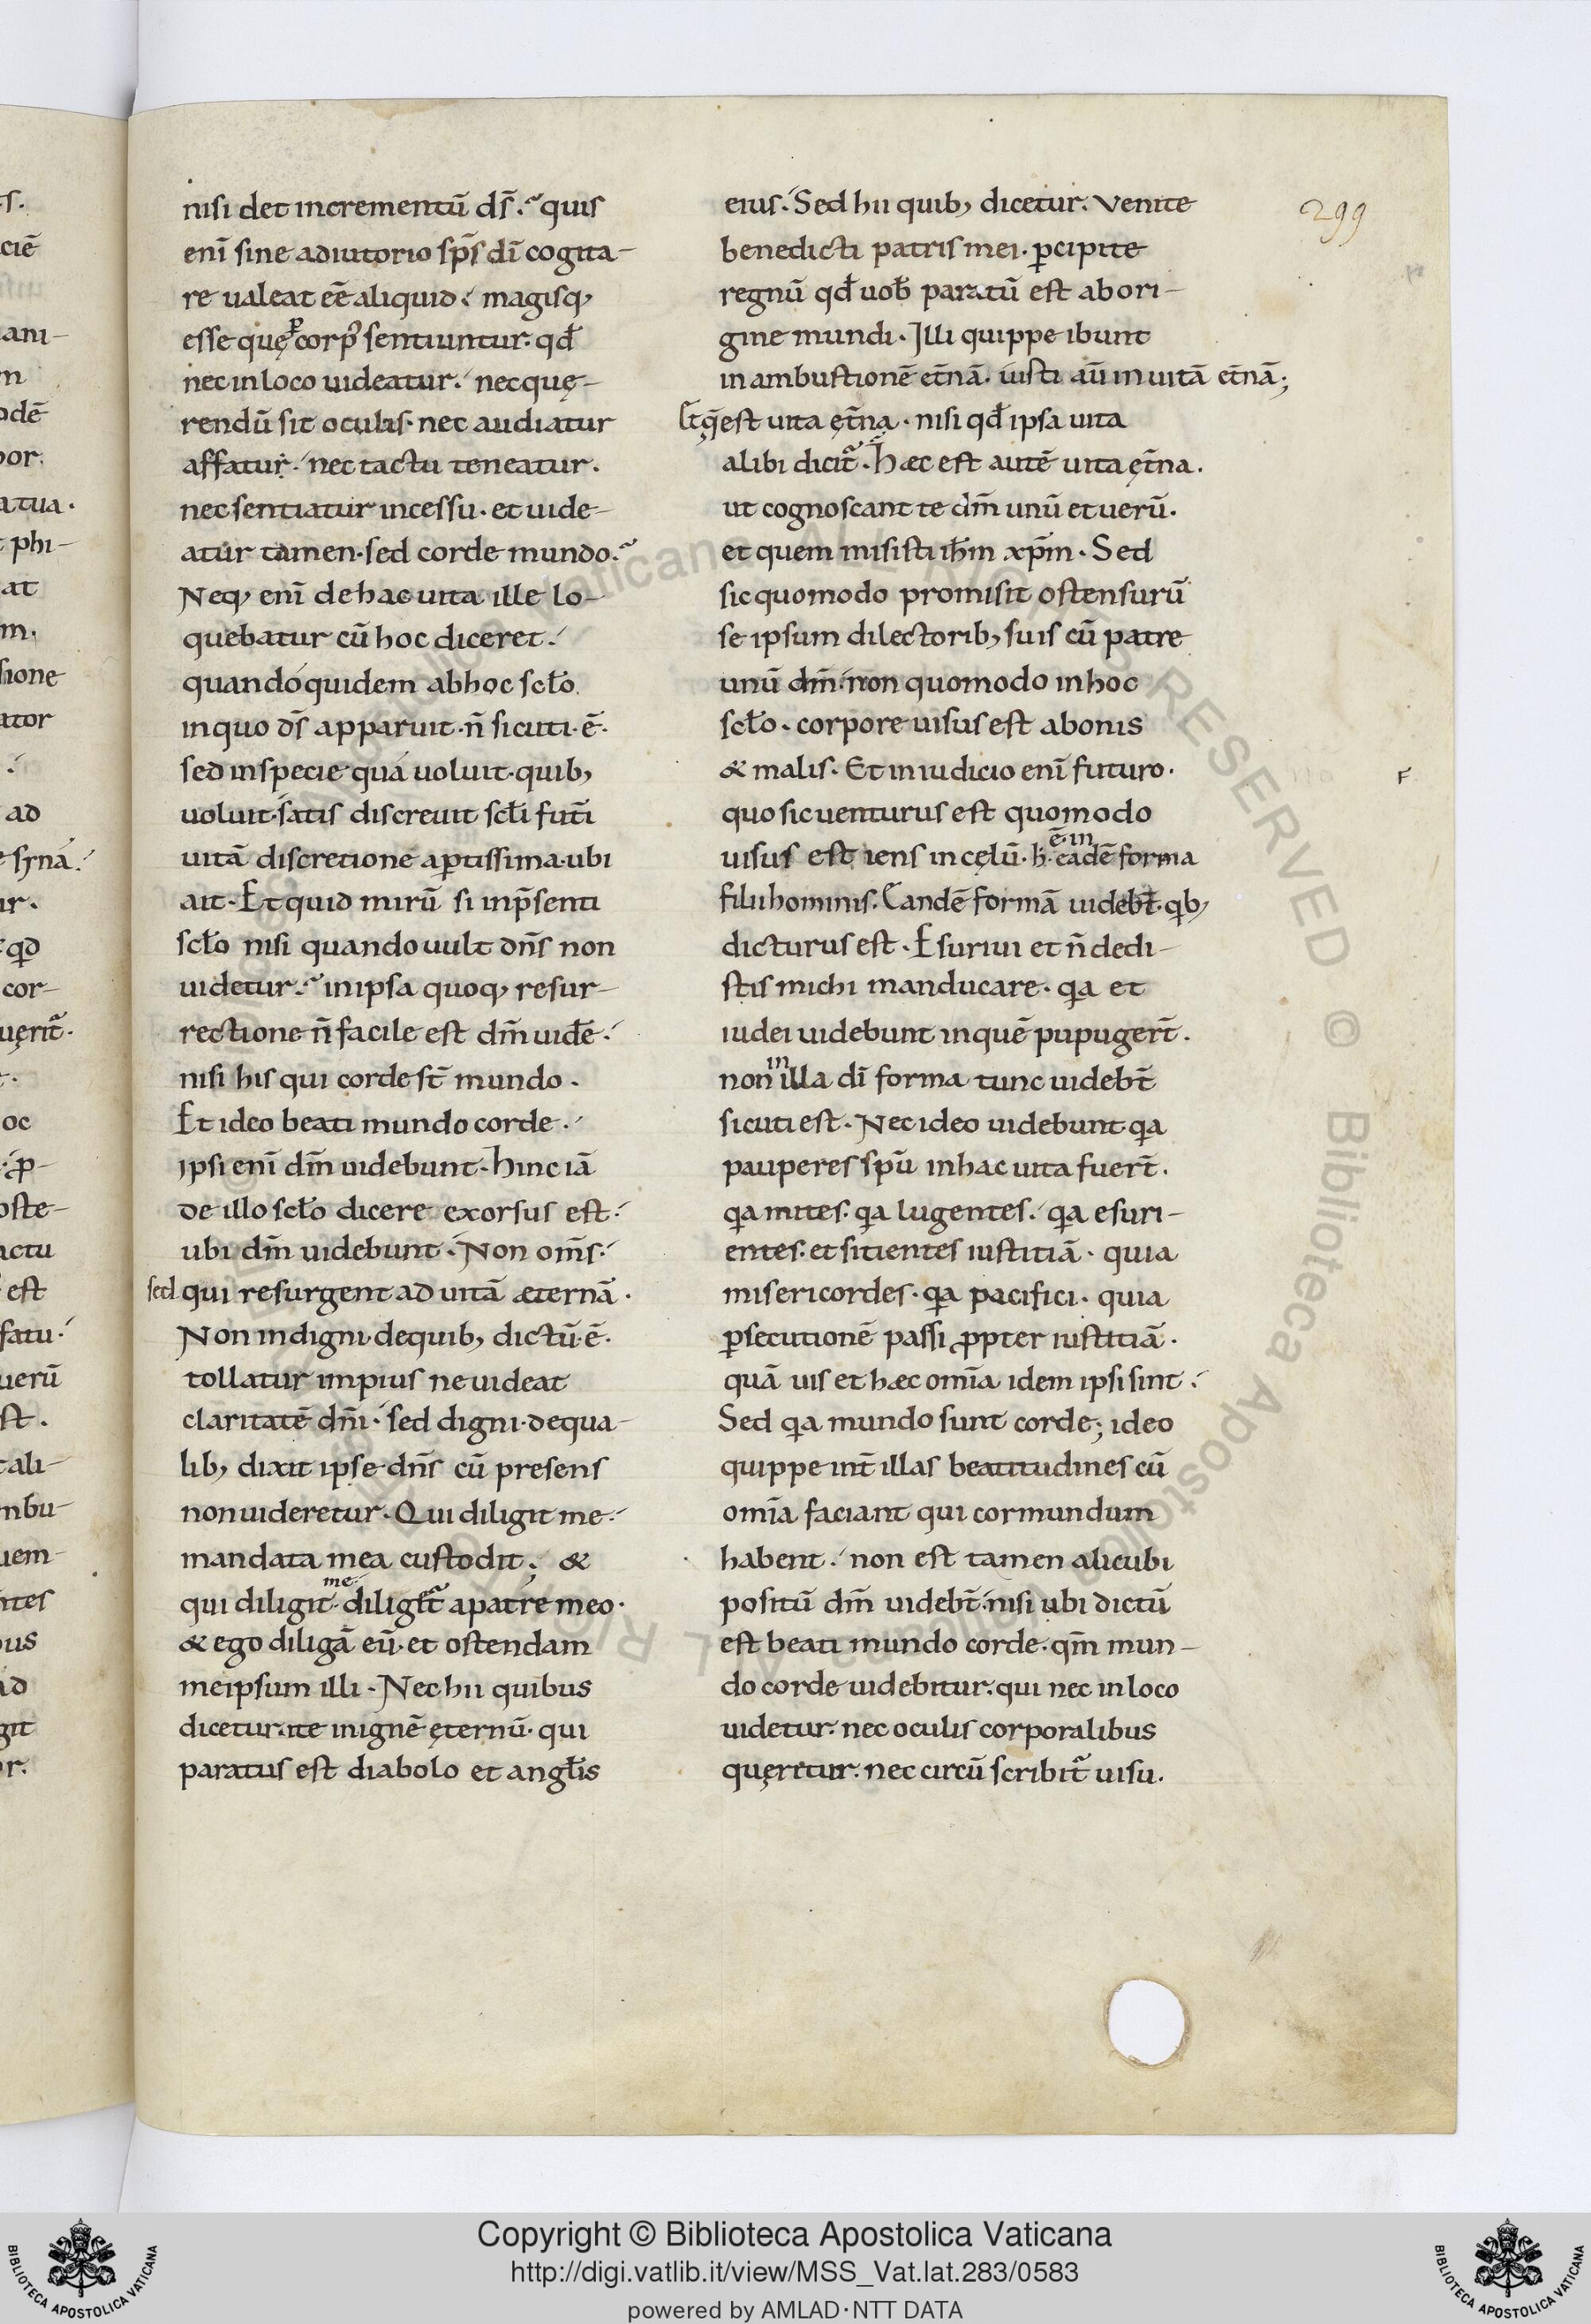 nisi det incrementū ds̄. quis
enī sine adiutorio sp̄s dī cogita-
re ualeat eē aliquid. magisq;
esse quę corp̄ sentiuntur. qd̄
nec in loco uideatur. nec quę-
rendū sit oculis. nec audiatur
affatur. nec tactu teneatur.
nec sentiatur incessu. et uide-
atur tamen. sed corde mundo.
Neq; enī de hac uita ille lo-
quebatur cū hoc diceret.
quando quidem ab hoc scl̄o
in quo ds̄ apparuit. n̄ sicuti. ē.
sed in specie qua uoluit. quib;
uoluit. satis discreuit scl̄i futī
uitā discretione aptissima. ubi
ait. Et quid mirū si in p̄senti
scl̄o nisi quando uult dn̄s non
uidetur. in ipsa quoq; resur-
rectione n̄ facile est dm̄ uidē.
nisi his qui corde st̄ mundo.
Et ideo beati mundo corde.
ipsi enī dm̄ uidebunt. hinc iā
de illo scl̄o dicere exorsus est.
ubi dm̄ uidebunt. Non om̄s.
sed qui resurgent ad uitā æternā.
Non indigni. de quib; dictū. ē.
tollatur impius ne uideat
claritatē dm̄i. sed digni. de qua-
lib; dixit ipse dn̄s cū presens
non uideretur. Qui diligit me.
mandata mea custodit; &
qui diligit me. diliget̄ a patre meo.
& ego diligā eū. et ostendam
me ipsum illi. Nec hii quibus
dicetur. ite in ignē ęternū. qui
paratus est diabolo et angl̄is
eius. Sed hii quib; dicetur. Venite
benedicti patris mei. pcipite
regnū qd̄ uob̄ paratū est ab ori-
gine mundi. Illi quippe ibunt
in ambustionē et̄nā. iusti aū in uitā et̄nā;
Et q̄ est uita ęt̄na. nisi qd̄ ipsa uita
alibi dicit̄. hæc est autē uita ęt̄na.
ut cognoscant te dm̄ unū et uerū.
et quem misisti ih̄m xp̄m. Sed
sic quomodo promisit ostensurū
se ipsum dilectorib; suis cū patre
unū dm̄. non quomodo in hoc
scl̄o. corpore uisus est a bonis
& malis. Et in iudicio enī futuro.
quo sic uenturus est quomodo
uisus est iens in cęlū. h. ē. in eadē forma
filii hominis. Eandē formā uidebt̄. qib;
dicturus est. Esuriui et n̄ dedi-
stis michi manducare. qa et
iudei uidebunt in quē pupugert̄.
non in illa dī forma tunc uidebt̄
sicuti est. Nec ideo uidebunt. qa
pauperes spū in hac uita fuert̄.
qa mites. qa lugentes. qa esuri-
entes. et sitientes iustitiā. quia
misericordes. qa pacifici. quia
psecutionē passi ppter iustitiā.
quā uis et hæc omīa idem ipsi sint.
Sed qa mundo sunt corde; ideo
quippe int̄ illas beatitudines cū
omīa faciant qui cor mundum
habent. non est tamen alicubi
positū dm̄ uidebt̄. nisi ubi dictū
est beati mundo corde. qm̄ mun-
do corde uidebitur. qui nec in loco
uidetur. nec oculis corporalibus
queretur. nec circū scribit̄ uisu.
299
F
Copyright © Biblioteca Apostolica Vaticana
http://digi.vatlib.it/view/MSS_Vat.lat.283/0583
powered by AMLAD·NTT DATA
BIBLIOTECA APOSTOLICA VATICANA
BIBLIOTECA APOSTOLICA VATICANA